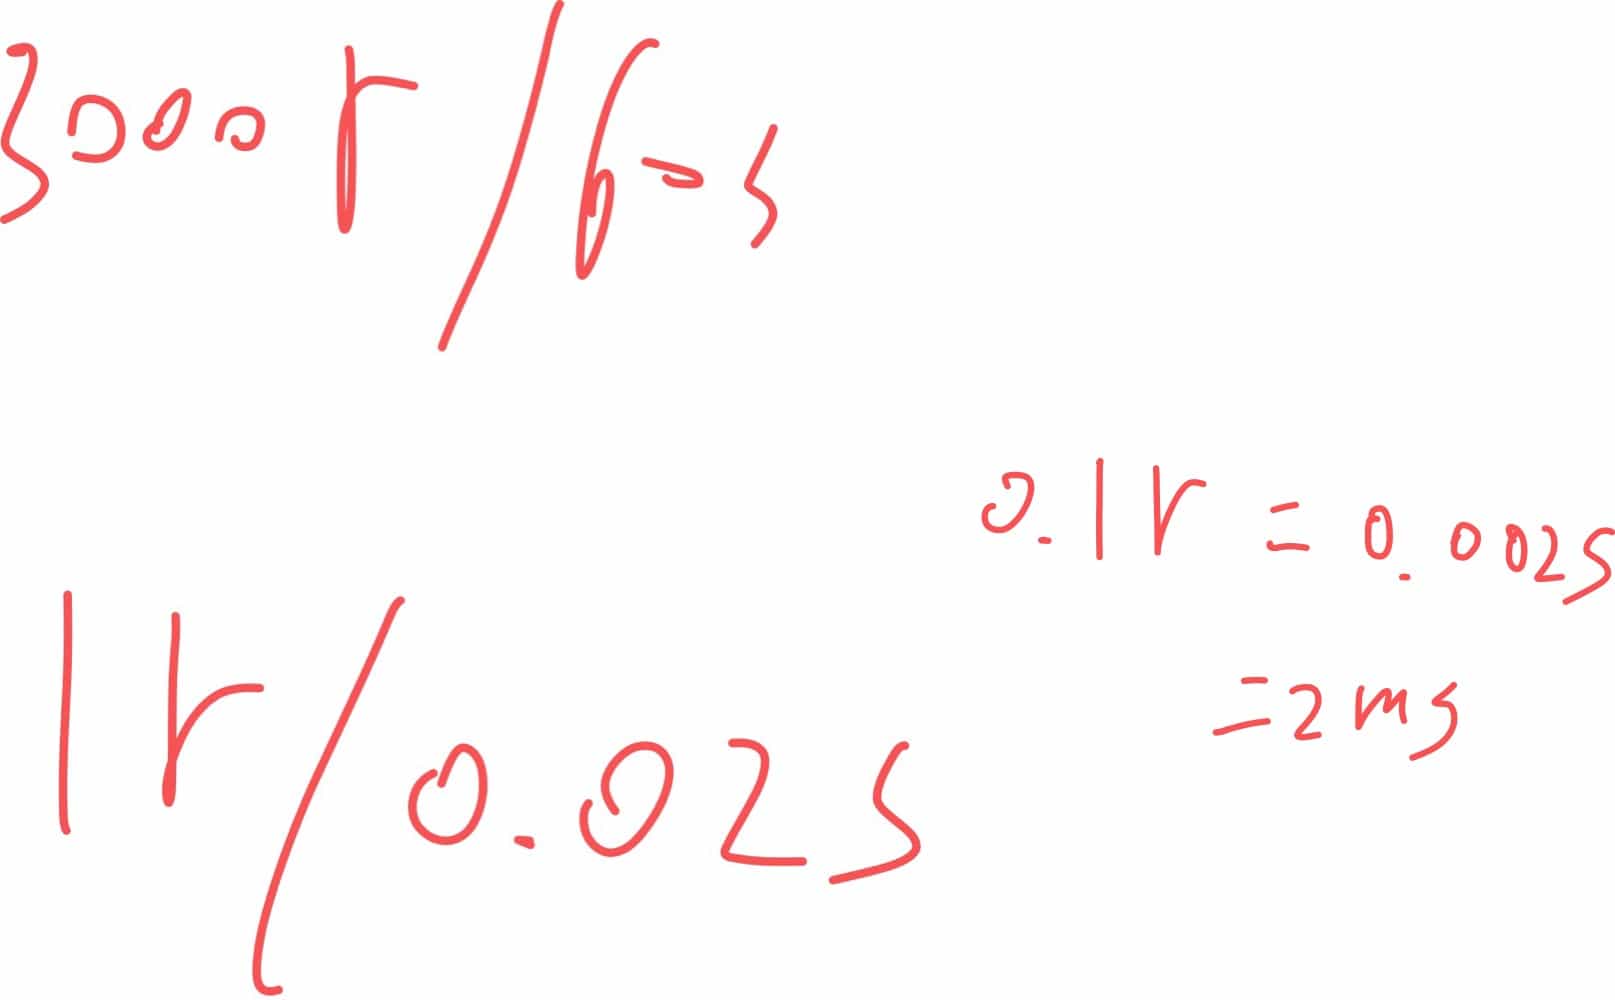 3000r/60s
1r/0.02s
0.1r=0.002s
=2ms